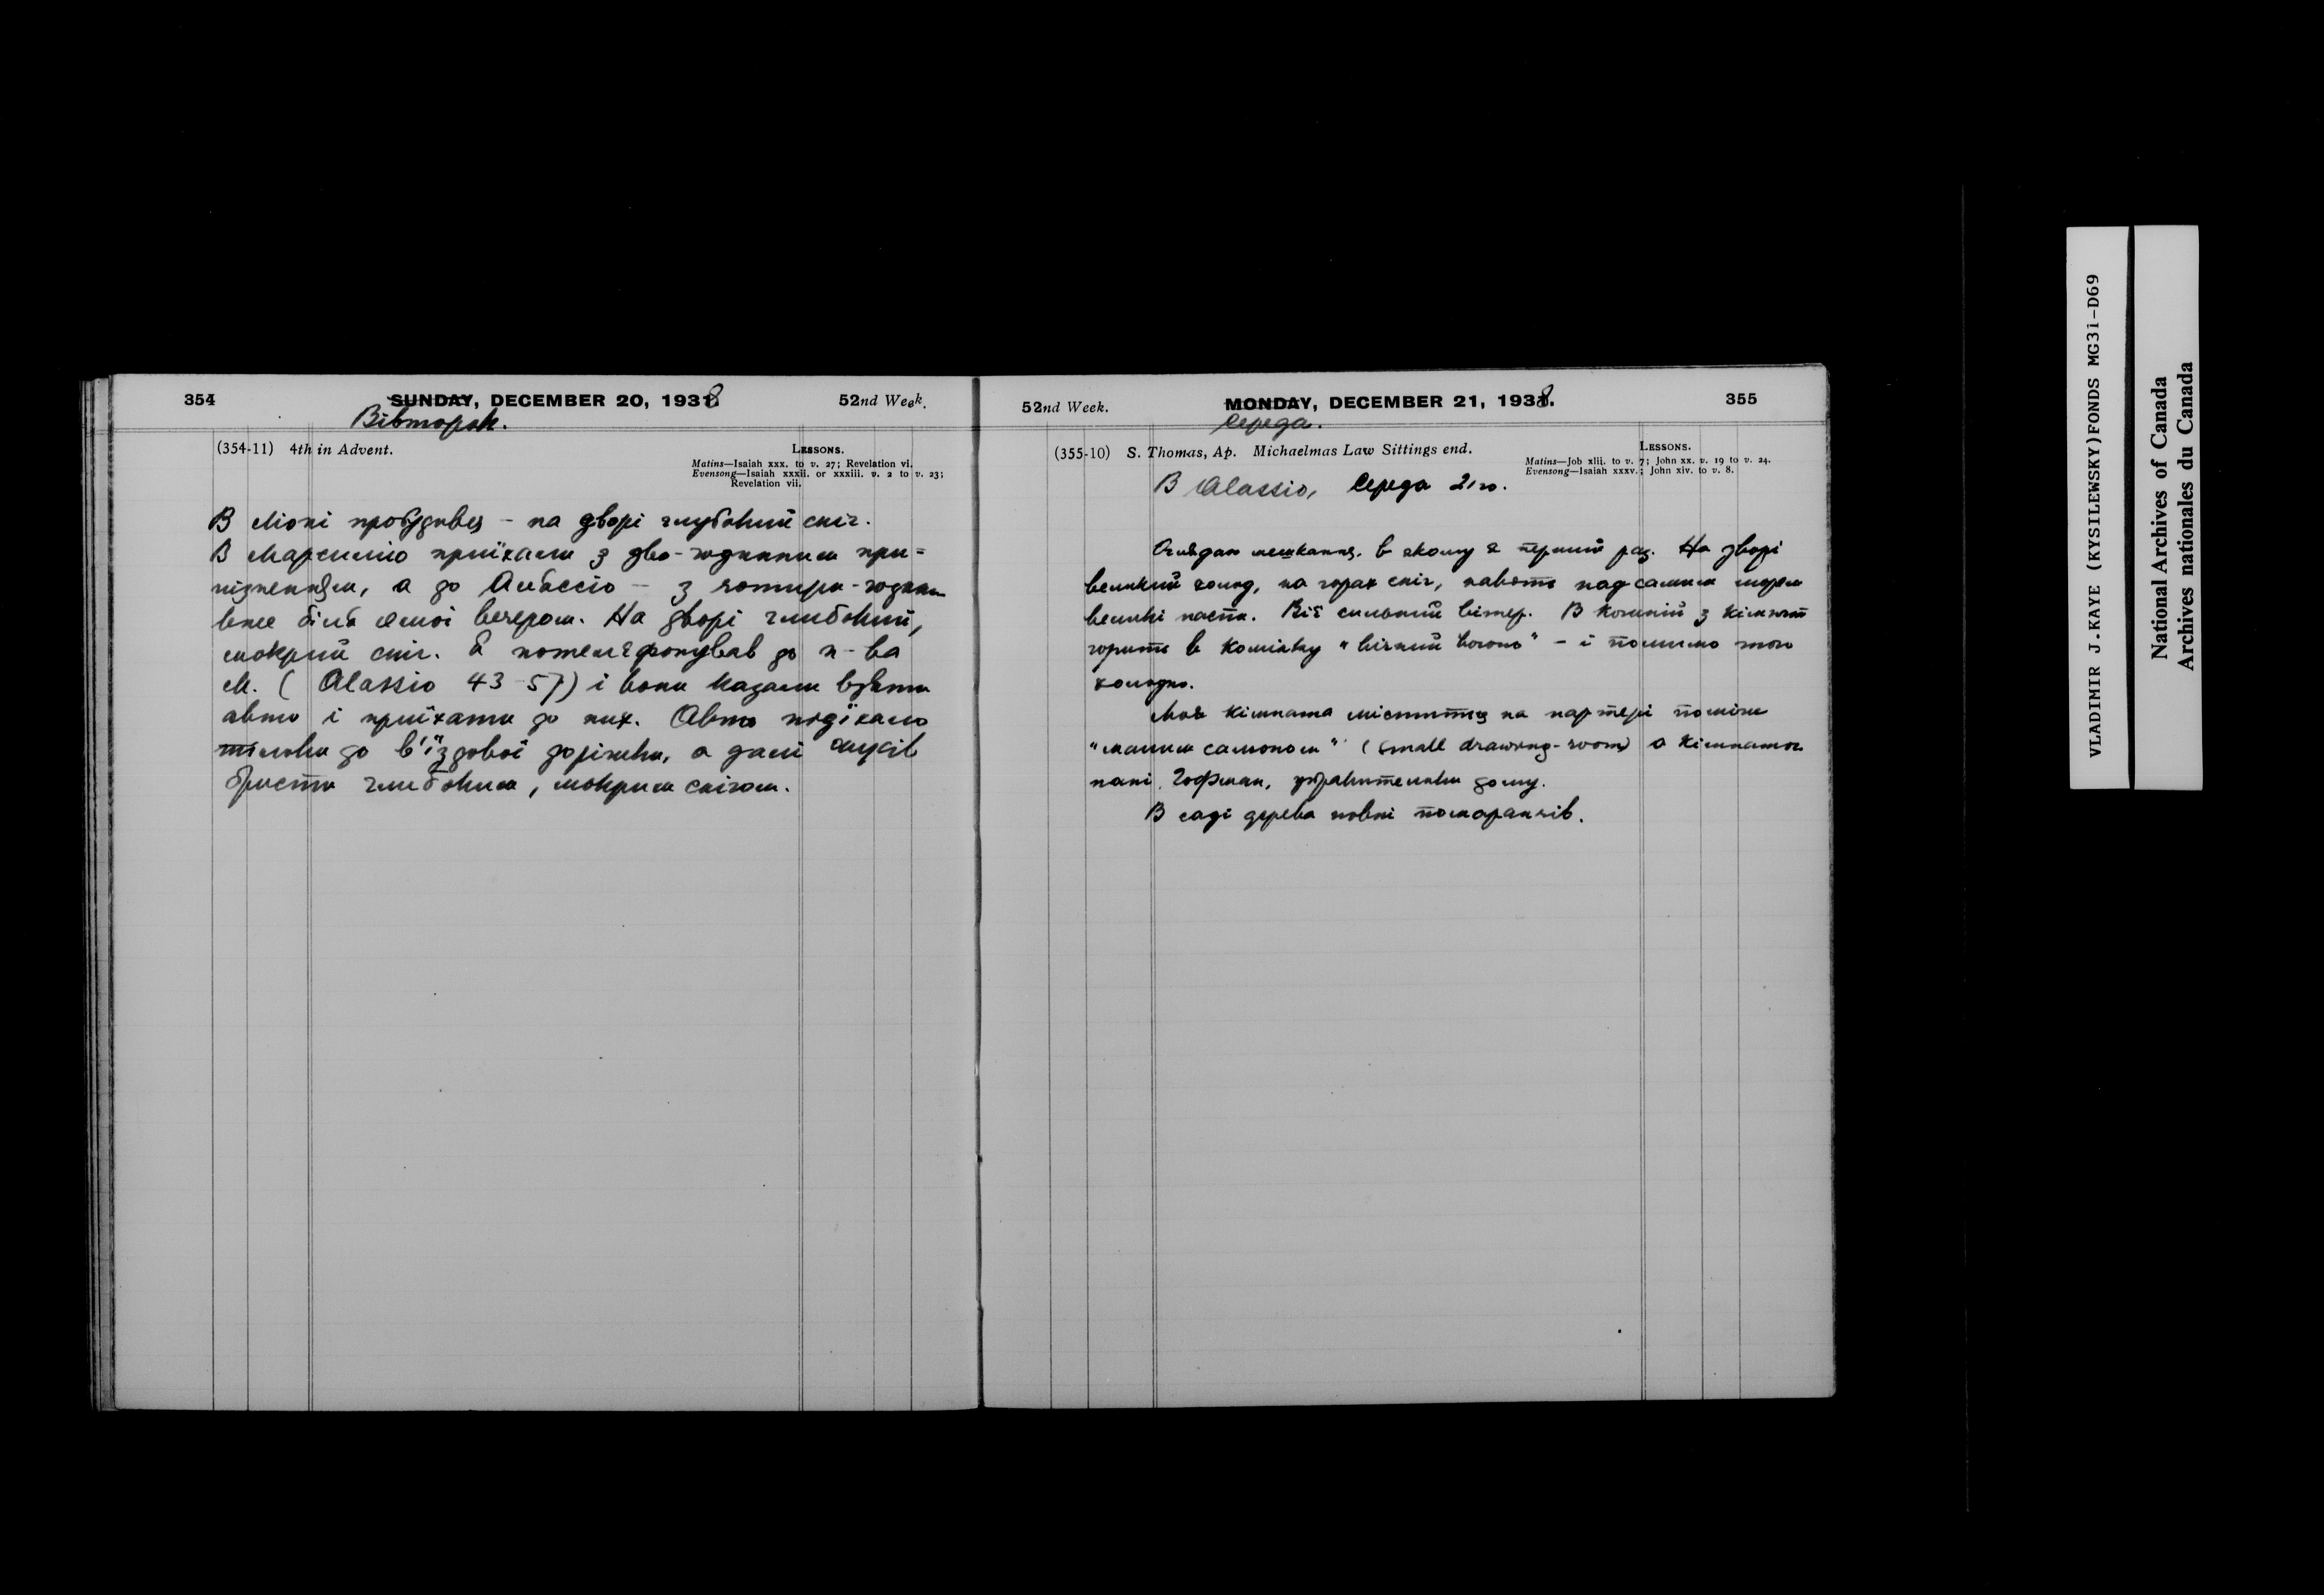 354 SUNDAY, DECEMBER 20, 1938. 52nd Week.
Вівторок.
(354-11) 4th in Advent. LESSONS.
Matins—Isaiah xxx. to v. 27; Revelation vi.
Evensong—Isaiah xxxii. or xxxiii. v. 2 to v. 23;
Revelation vii.
В Ліоні пробудився – на дворі глубокий сніг.
В Марсилію приїхали з дво-годинним при=
пізненням, а до Алассіо – з чотири-годин
вже біля семої вечером. На дворі глибокий,
мокрий сніг. Я потелєфонував до п-ва
М. (Alassio 43-57) і вони казали взяти
авто і приїхати до них. Авто подїхало
тільки до в'їздової доріжки, а далі мусів
бристи глибоким, мокрим снігом.
52nd Week. MONDAY, DECEMBER 21, 1938. 355
Середа.
(355-10) S. Thomas, Ap. Michaelmas Law Sittings end. LESSONS.
Matins—Job xlii. to v. 7; John xx. v. 19 to v. 24.
Evensong—Isaiah xxxv.; John xiv. to v. 8.
В Alassio, Середа 21го.
Оглядаю мешкання, в якому я перший раз. На дворі
великий холод, на горах сніг, навіть над самим морем
великі пасти. Віє сильний вітер. В кожній з кімнат
горить в комінку "вічний вогонь" – і помимо того
холодно.
Моя кімната міститься на партері поміж
"малим сальоном" (small drawing-room) а кімнатою
пані Гофман, управительки дому.
В саді дерева повні помаранчів.
VLADIMIR J.KAYE (KYSILEWSKY)FONDS MG31-D69
National Archives of Canada
Archives nationales du Canada